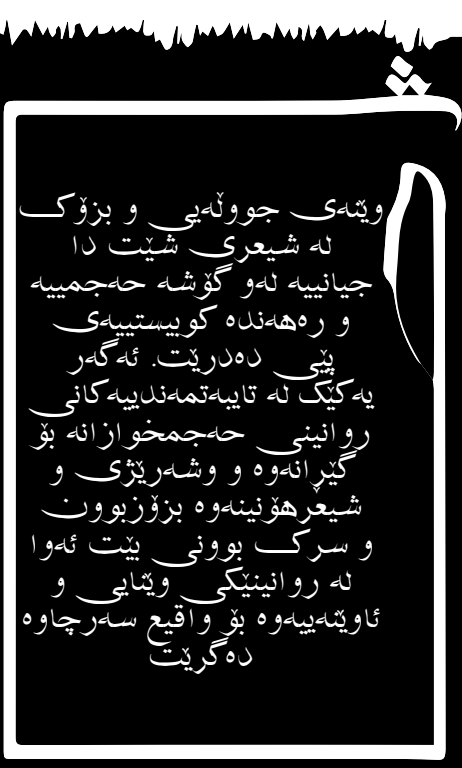 وێنەی جووڵەیی و بزۆک
لە شیعری شێت دا
جیانییە لەو گۆشە حەجمییە
و رەهەندە کوبیستییەی
پێی دەدرێت. ئەگەر
یەکێک لە تایبەتمەندییەکانی
روانینی حەجمخوازانە بۆ
گێرانەوە و وشەرێژی و
شیعرهۆنینەوە بزۆزبوون
و سرک بوونی بێت ئەوا
لە روانینێکی وێنایی و
ئاوێنەییەوە بۆ واقیع سەرچاوە
دەگرێت